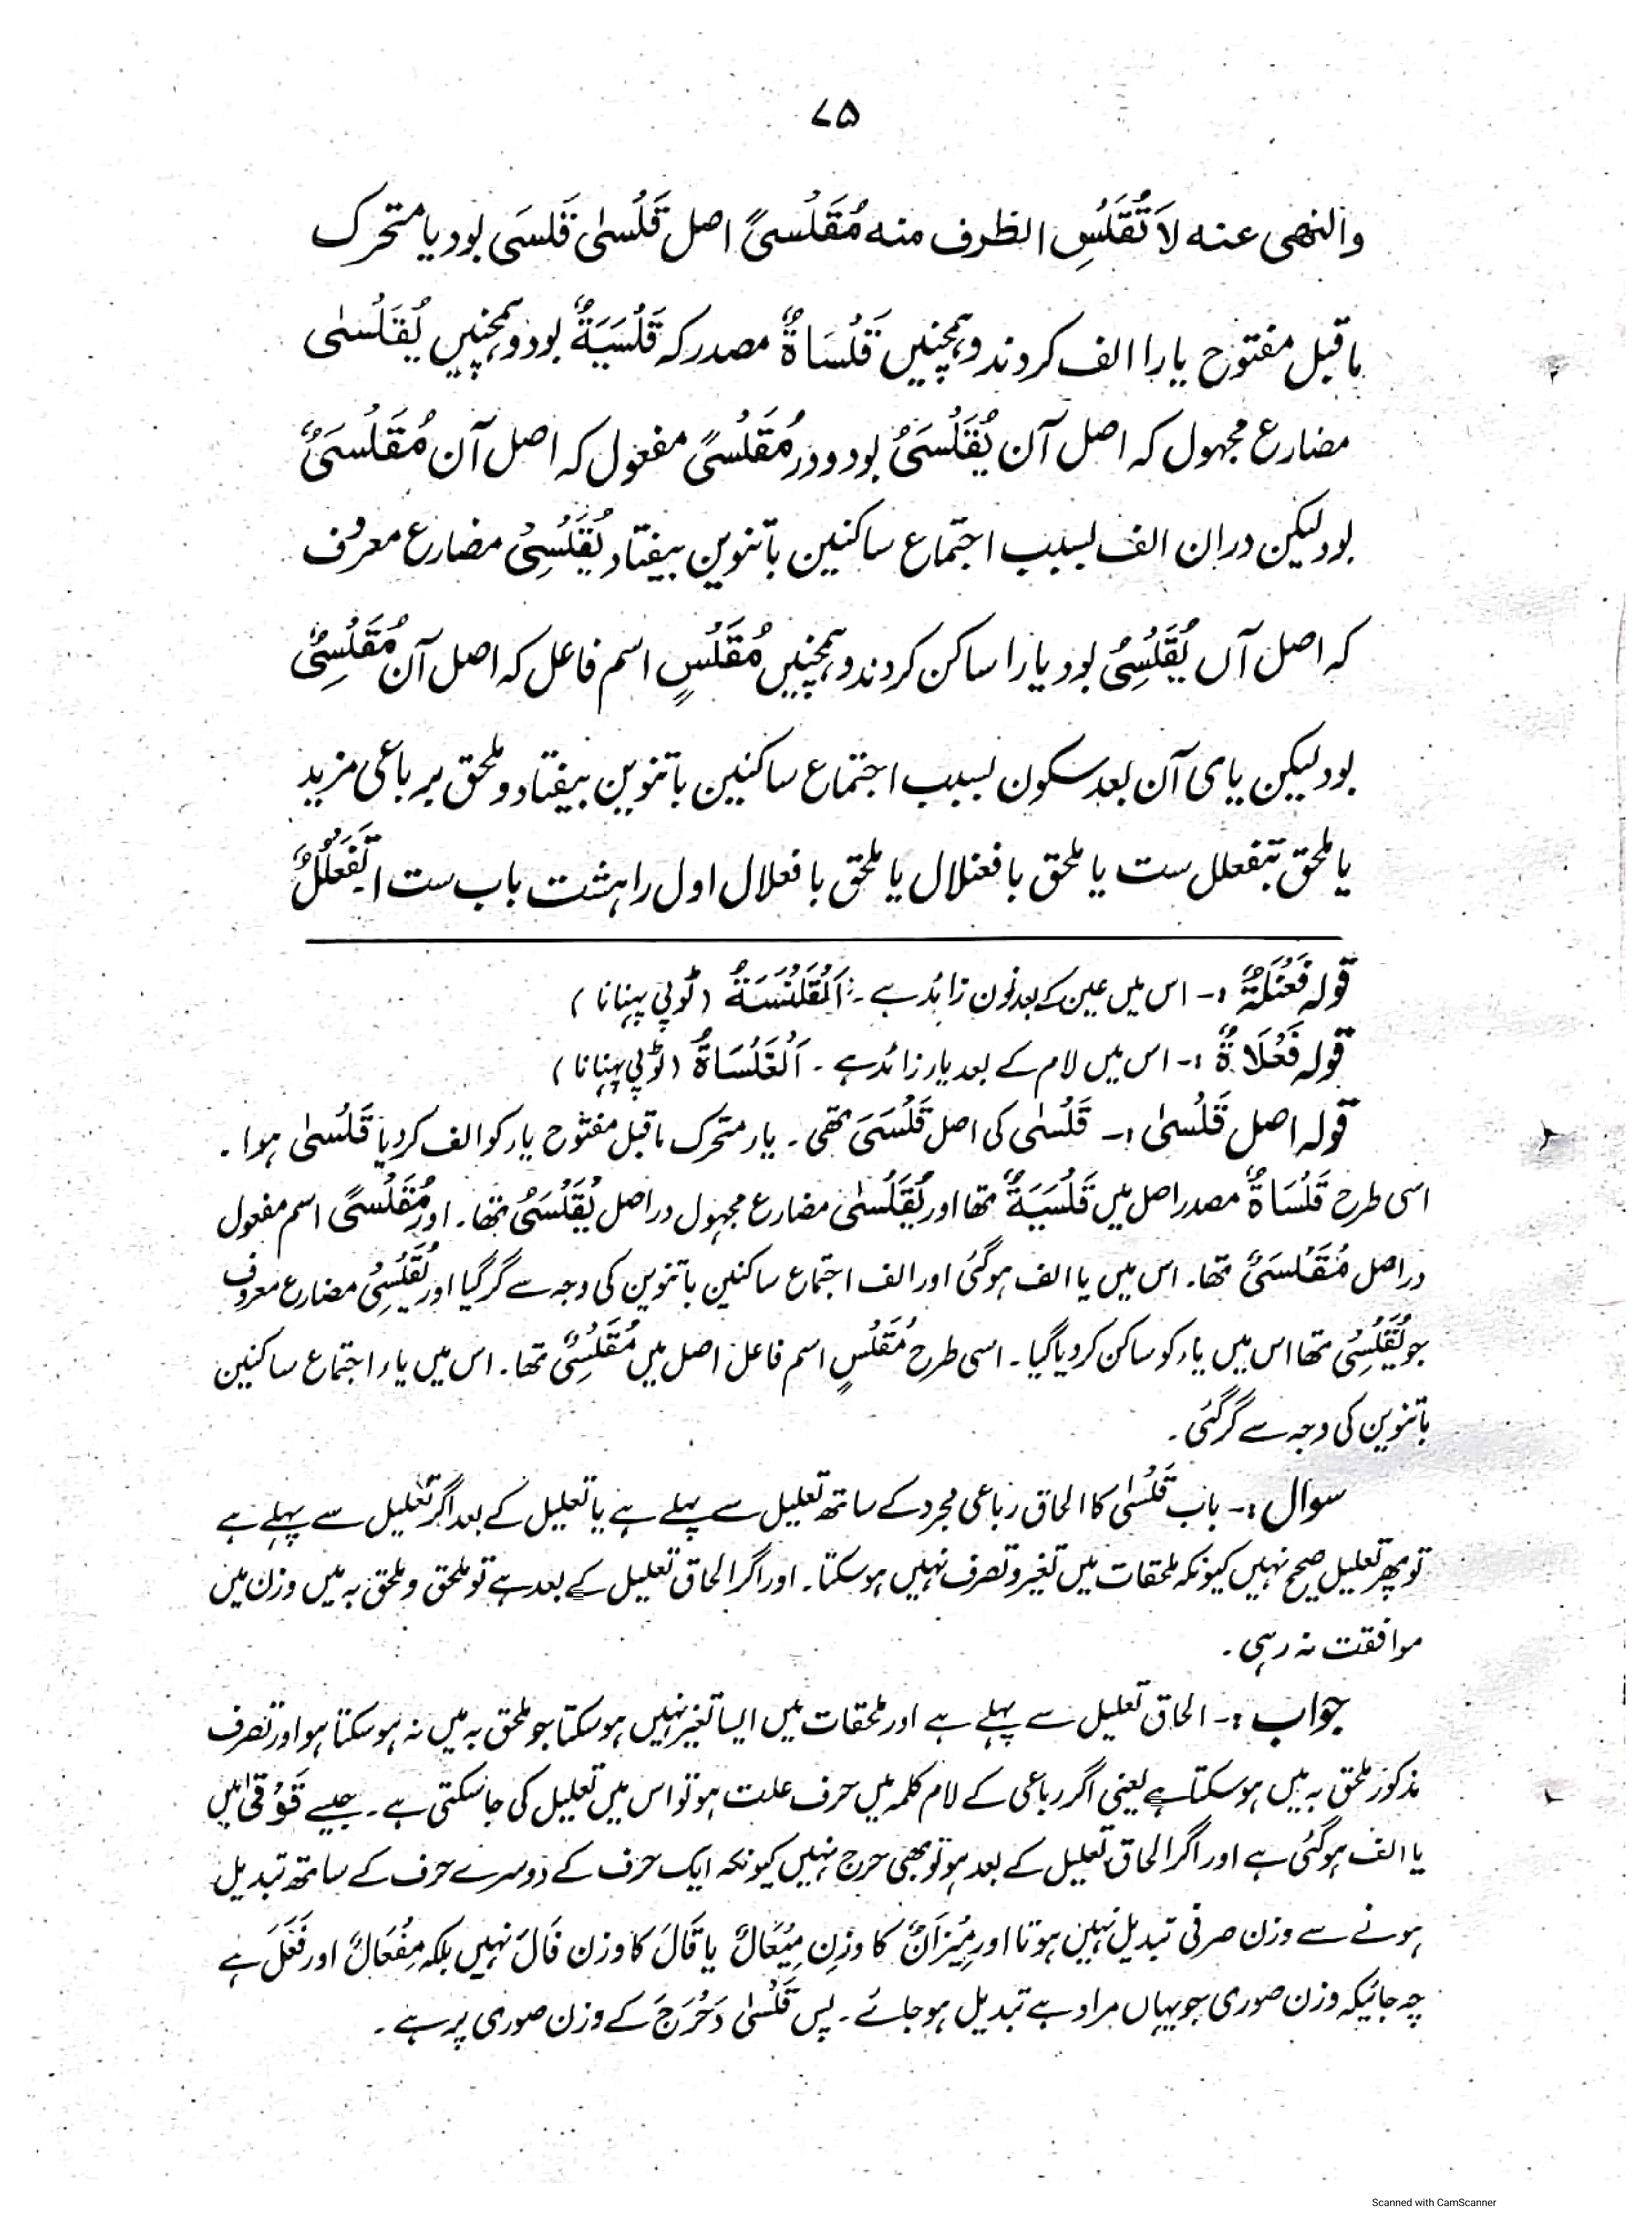 ۷۵
والنهی عنه لَا تُقَلْسِ الظرف منه مُقَلْسیً اصل قَلْسیٰ قَلْسَیَ بود یا متحرک
ما قبل مفتوح یا را الف کردند و ہمچنیں قَلْسَاةٌ مصدر کہ قَلْسَیَةٌ بود و ہمچنیں یُقَلْسیٰ
مضارع مجہول کہ اصل آن یُقَلْسَیُ بود و در مُقَلْسیً مفعول کہ اصل آن مُقَلْسَیٌ
بود لیکن دران الف بسبب اجتماع ساکنین با تنوین بیفتاد یُقَلْسِیْ مضارع معروف
کہ اصل آں یُقَلْسِیُ بود یا را ساکن کردند و ہمچنیں مُقَلْسٍ اسم فاعل کہ اصل آن مُقَلْسِیٌ
بود لیکن یای آن بعد سکون بسبب اجتماع ساکنین با تنوین بیفتاد و ملحق برباعی مزید
یا ملحق بتفعلل ست یا ملحق با فعنلال یا ملحق با فعلال اول را ہشت باب ست ۱۔ تَفَعْلُلٌ
قولہ فَعْنَلَةٌ :۔ اس میں عین کے بعد نون زائد ہے۔ اَلْقَلْنَسَةُ (ٹوپی پہنانا)
قولہ فَعْلَاةٌ :۔ اس میں لام کے بعد یار زائد ہے۔ اَلْقَلْسَاةُ (ٹوپی پہنانا)
قولہ اصل قَلْسیٰ :۔ قَلْسیٰ کی اصل قَلْسَیَ تھی۔ یار متحرک ما قبل مفتوح یار کو الف کر دیا قَلْسیٰ ہوا۔
اسی طرح قَلْسَاةٌ مصدر اصل میں قَلْسَیَةٌ تھا اور یُقَلْسیٰ مضارع مجہول در اصل یُقَلْسَیُ تھا۔ اور مُقَلْسیً اسم مفعول
در اصل مُقَلْسَیٌ تھا۔ اس میں یا الف ہو گئی اور الف اجتماع ساکنین با تنوین کی وجہ سے گر گیا اور یُقَلْسِیْ مضارع معروف
جو یُقَلْسِیُ تھا اس میں یاء کو ساکن کر دیا گیا۔ اسی طرح مُقَلْسٍ اسم فاعل اصل میں مُقَلْسِیٌ تھا۔ اس میں یاء اجتماع ساکنین
با تنوین کی وجہ سے گر گئی۔
سوال :۔ باب قَلْسیٰ کا الحاق رباعی مجرد کے ساتھ تعلیل سے پہلے ہے یا تعلیل کے بعد اگر تعلیل سے پہلے ہے
تو پھر تعلیل صحیح نہیں کیونکہ ملحقات میں تغیر و تصرف نہیں ہو سکتا۔ اور اگر الحاق تعلیل کے بعد ہے تو ملحق و ملحق بہ میں وزن میں
موافقت نہ رہی۔
جواب :۔ الحاق تعلیل سے پہلے ہے اور ملحقات میں ایسا تغیر نہیں ہو سکتا جو ملحق بہ میں نہ ہو سکتا ہو اور تصرف
مذکور ملحق بہ میں ہو سکتا ہے یعنی اگر رباعی کے لام کلمہ میں حرف علت ہو تو اس میں تعلیل کی جا سکتی ہے۔ جیسے قَوْقیٰ میں
یا الف ہو گئی ہے اور اگر الحاق تعلیل کے بعد ہو تو بھی حرج نہیں کیونکہ ایک حرف کے دوسرے حرف کے ساتھ تبدیل
ہونے سے وزن صرفی تبدیل نہیں ہوتا اور مِیْزَانٌ کا وزن مِیْعَالٌ یا قَالَ کا وزن فَالَ نہیں بلکہ مِفْعَالٌ اور فَعَلَ ہے
چہ جائیکہ وزن صوری جو یہاں مراد ہے تبدیل ہو جائے۔ پس قَلْسیٰ دَحْرَجَ کے وزن صوری پر ہے۔
Scanned with CamScanner